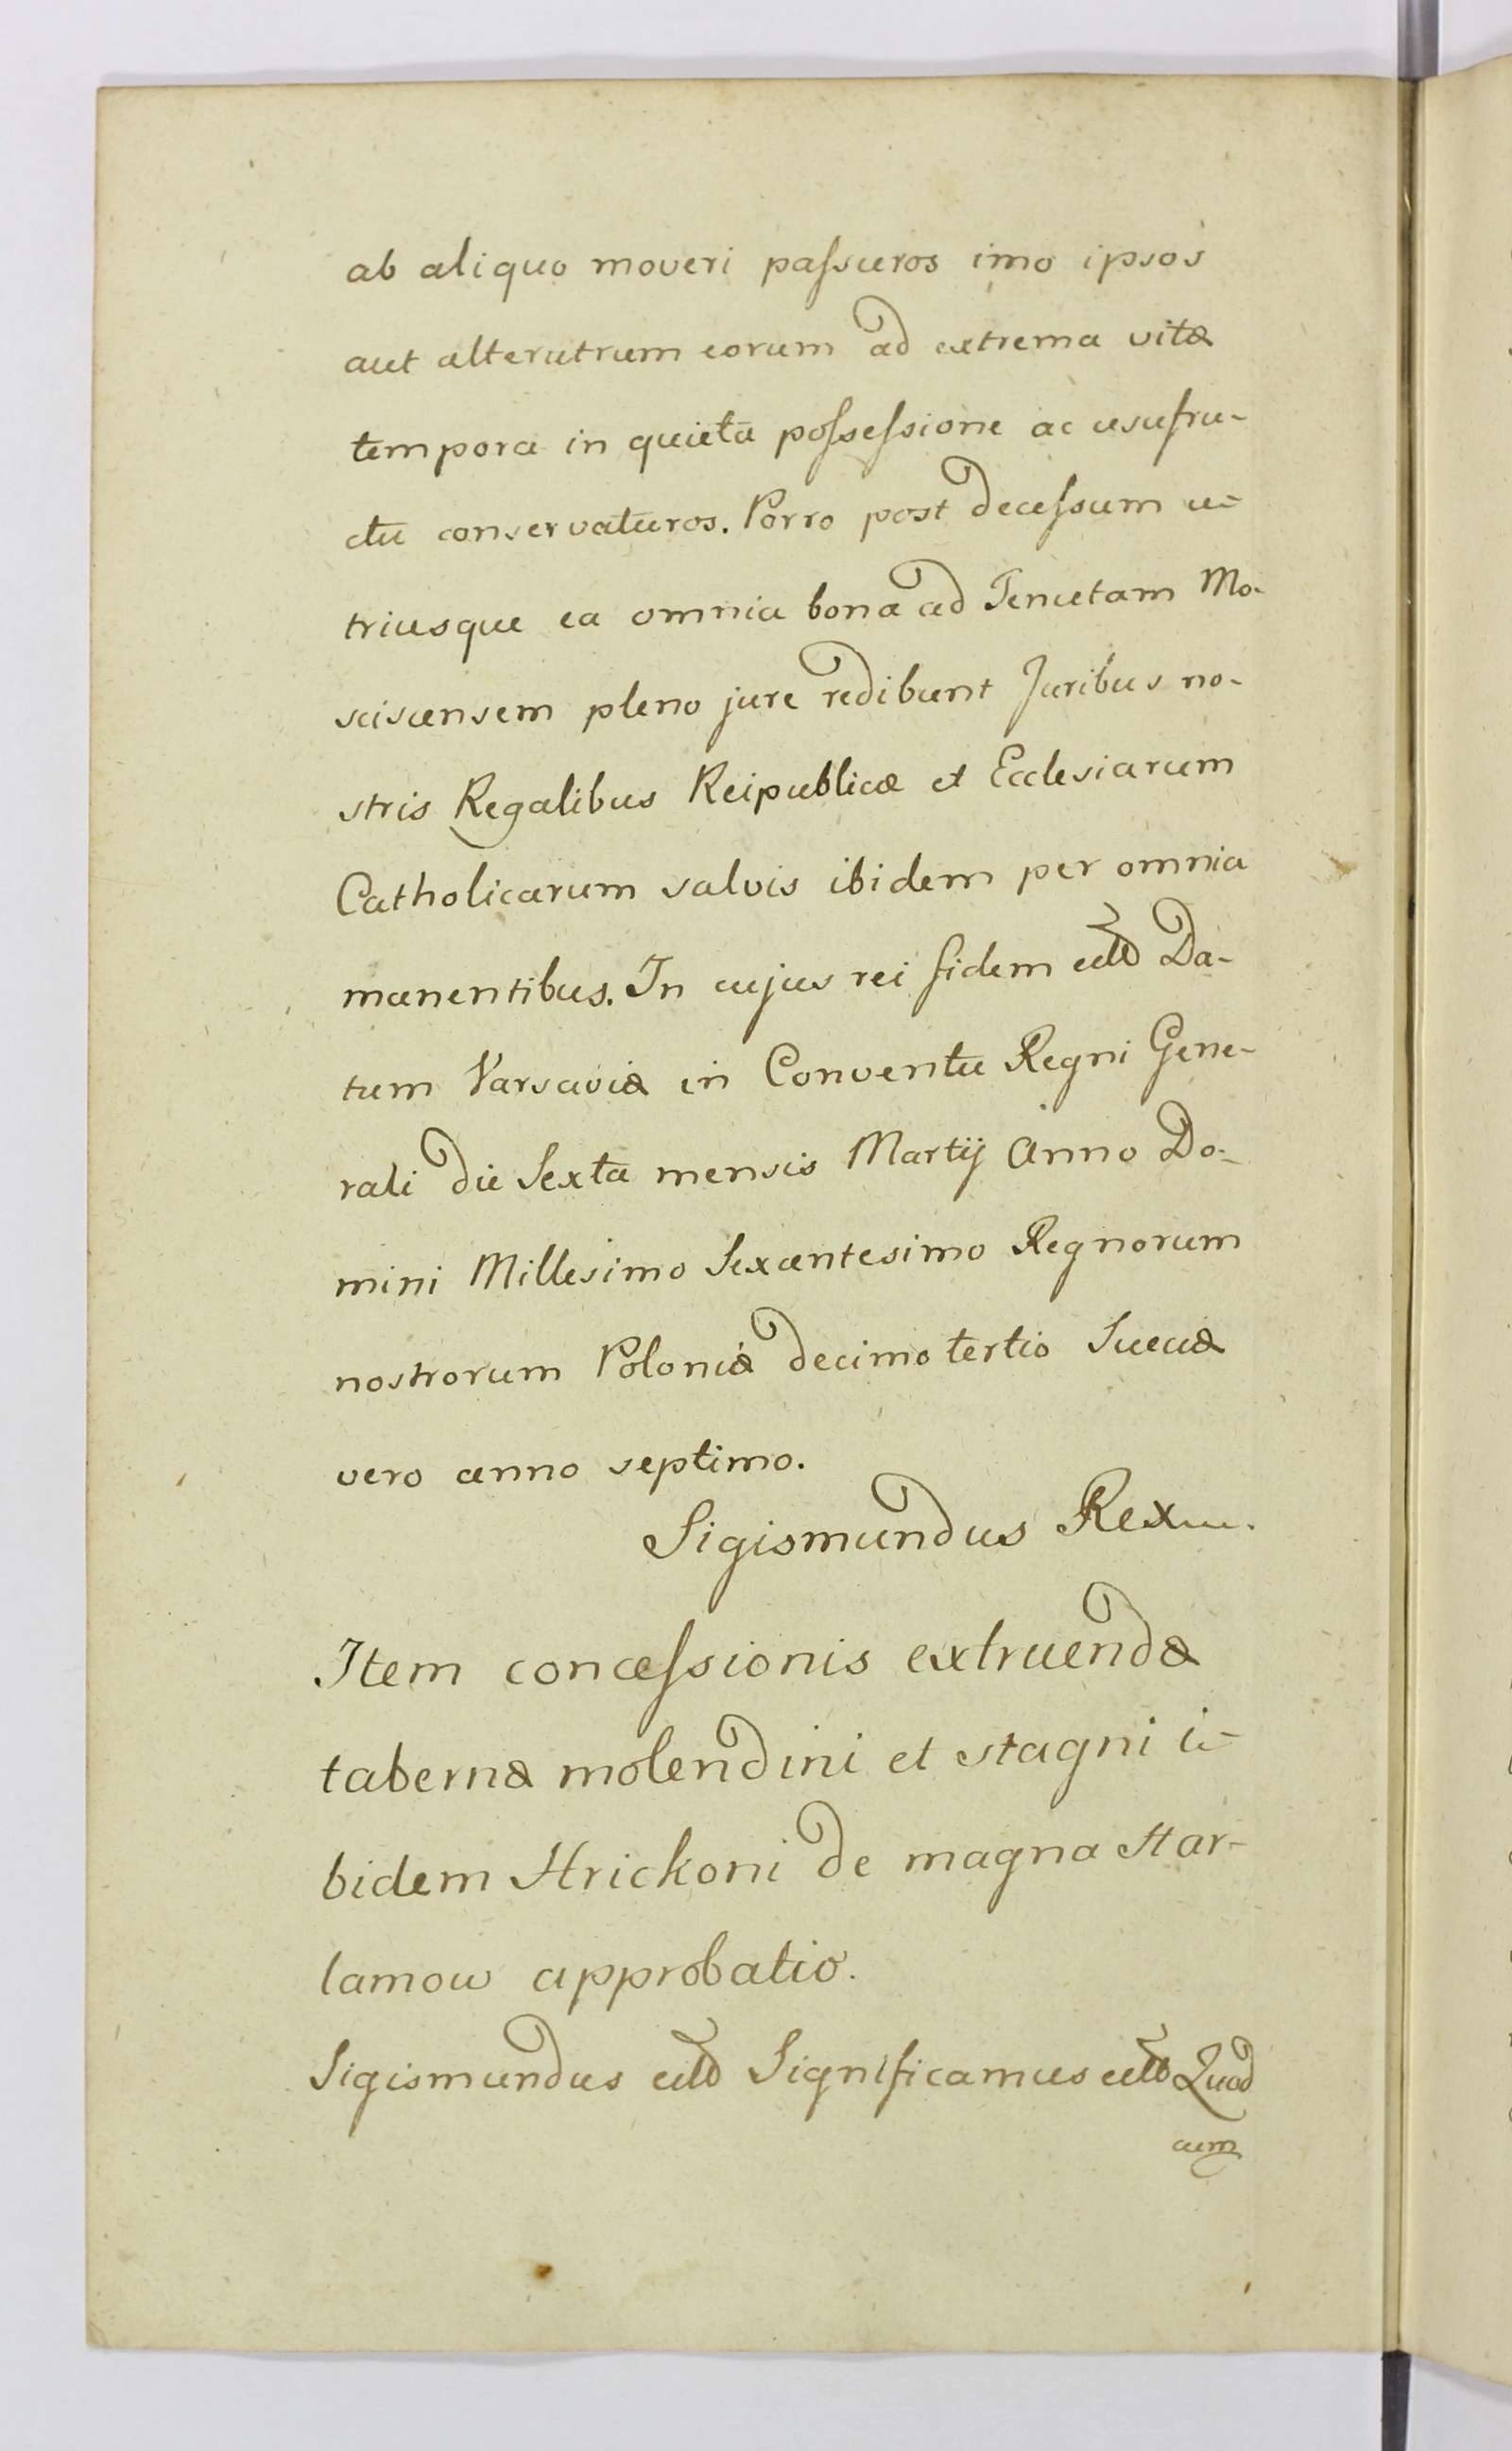 ab aliquo moveri paſsuros imo ipsos
aut alterutrum eorum ad extrema vitæ
tempora in quieta poſseſsione ac usufru-
ctu conservaturos. Porro post deceſsum u-
triusque ea omnia bona ad Tenutam Mo-
sciscensem pleno jure redibunt Juribus no-
stris Regalibus Reipublicæ et Ecclesiarum
Catholicarum salvis ibidem per omnia
manentibus. In cujus rei fidem Da-
tum Varsaviæ in Conventu Regni Gene-
rali die Sexta mensis Martij Anno Do-
mini Millesimo Sexcentesimo Regnorum
nostrorum Poloniæ decimo tertio Sueciæ
vero anno septimo.
Sigismundus Rex
Item conceſsionis extruendæ
tabernæ molendini et stagni i-
bidem Hrickoni de magna Har-
lamow approbatio.
Sigismundus Significamus Quod
cum